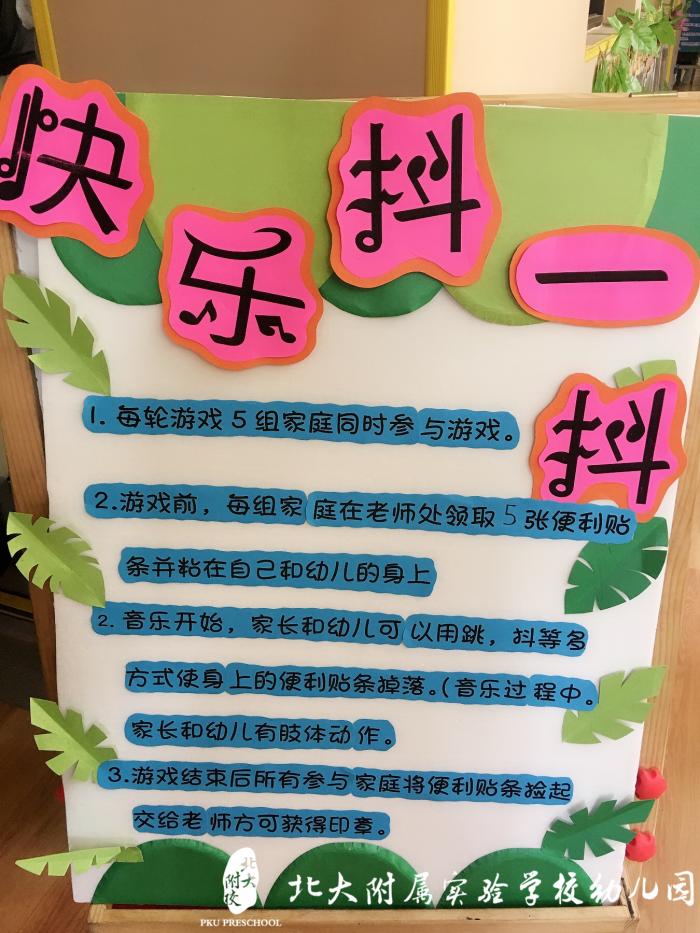 快乐抖一抖
1. 每轮游戏5组家庭同时参与游戏。
2.游戏前，每组家庭在老师处领取5张便利贴
条并粘在自己和幼儿的身上
2.音乐开始，家长和幼儿可以用跳，抖等多
方式使身上的便利贴条掉落。(音乐过程中。
家长和幼儿有肢体动作。
3.游戏结束后所有参与家庭将便利贴条捡起
交给老师方可获得印章。
北大附校
PKU PRESCHOOL
北大附属实验学校幼儿园